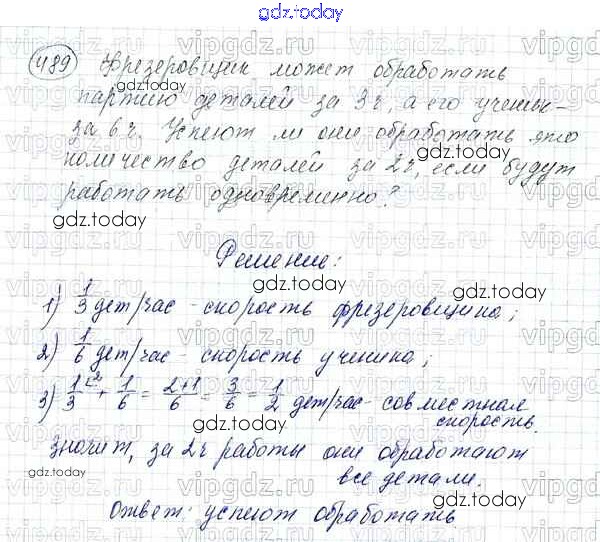 gdz.today
489 Фрезеровщик может обработать
партию деталей за 3 ч, а его ученик -
за 6 ч. Успеют ли они обработать это
количество деталей за 2 ч, если будут
работать одновременно?
gdz.today
Решение:
gdz.today
1) 1/3 дет/час - скорость фрезеровщика;
2) 1/6 дет/час - скорость ученика;
3) 1/3 + 1/6 = (2+1)/6 = 3/6 = 1/2 дет/час - совместная
скорость.
значит, за 2 ч работы они обработают
все детали.
gdz.today
Ответ: успеют обработать
gdz.today
vipgdz.ru